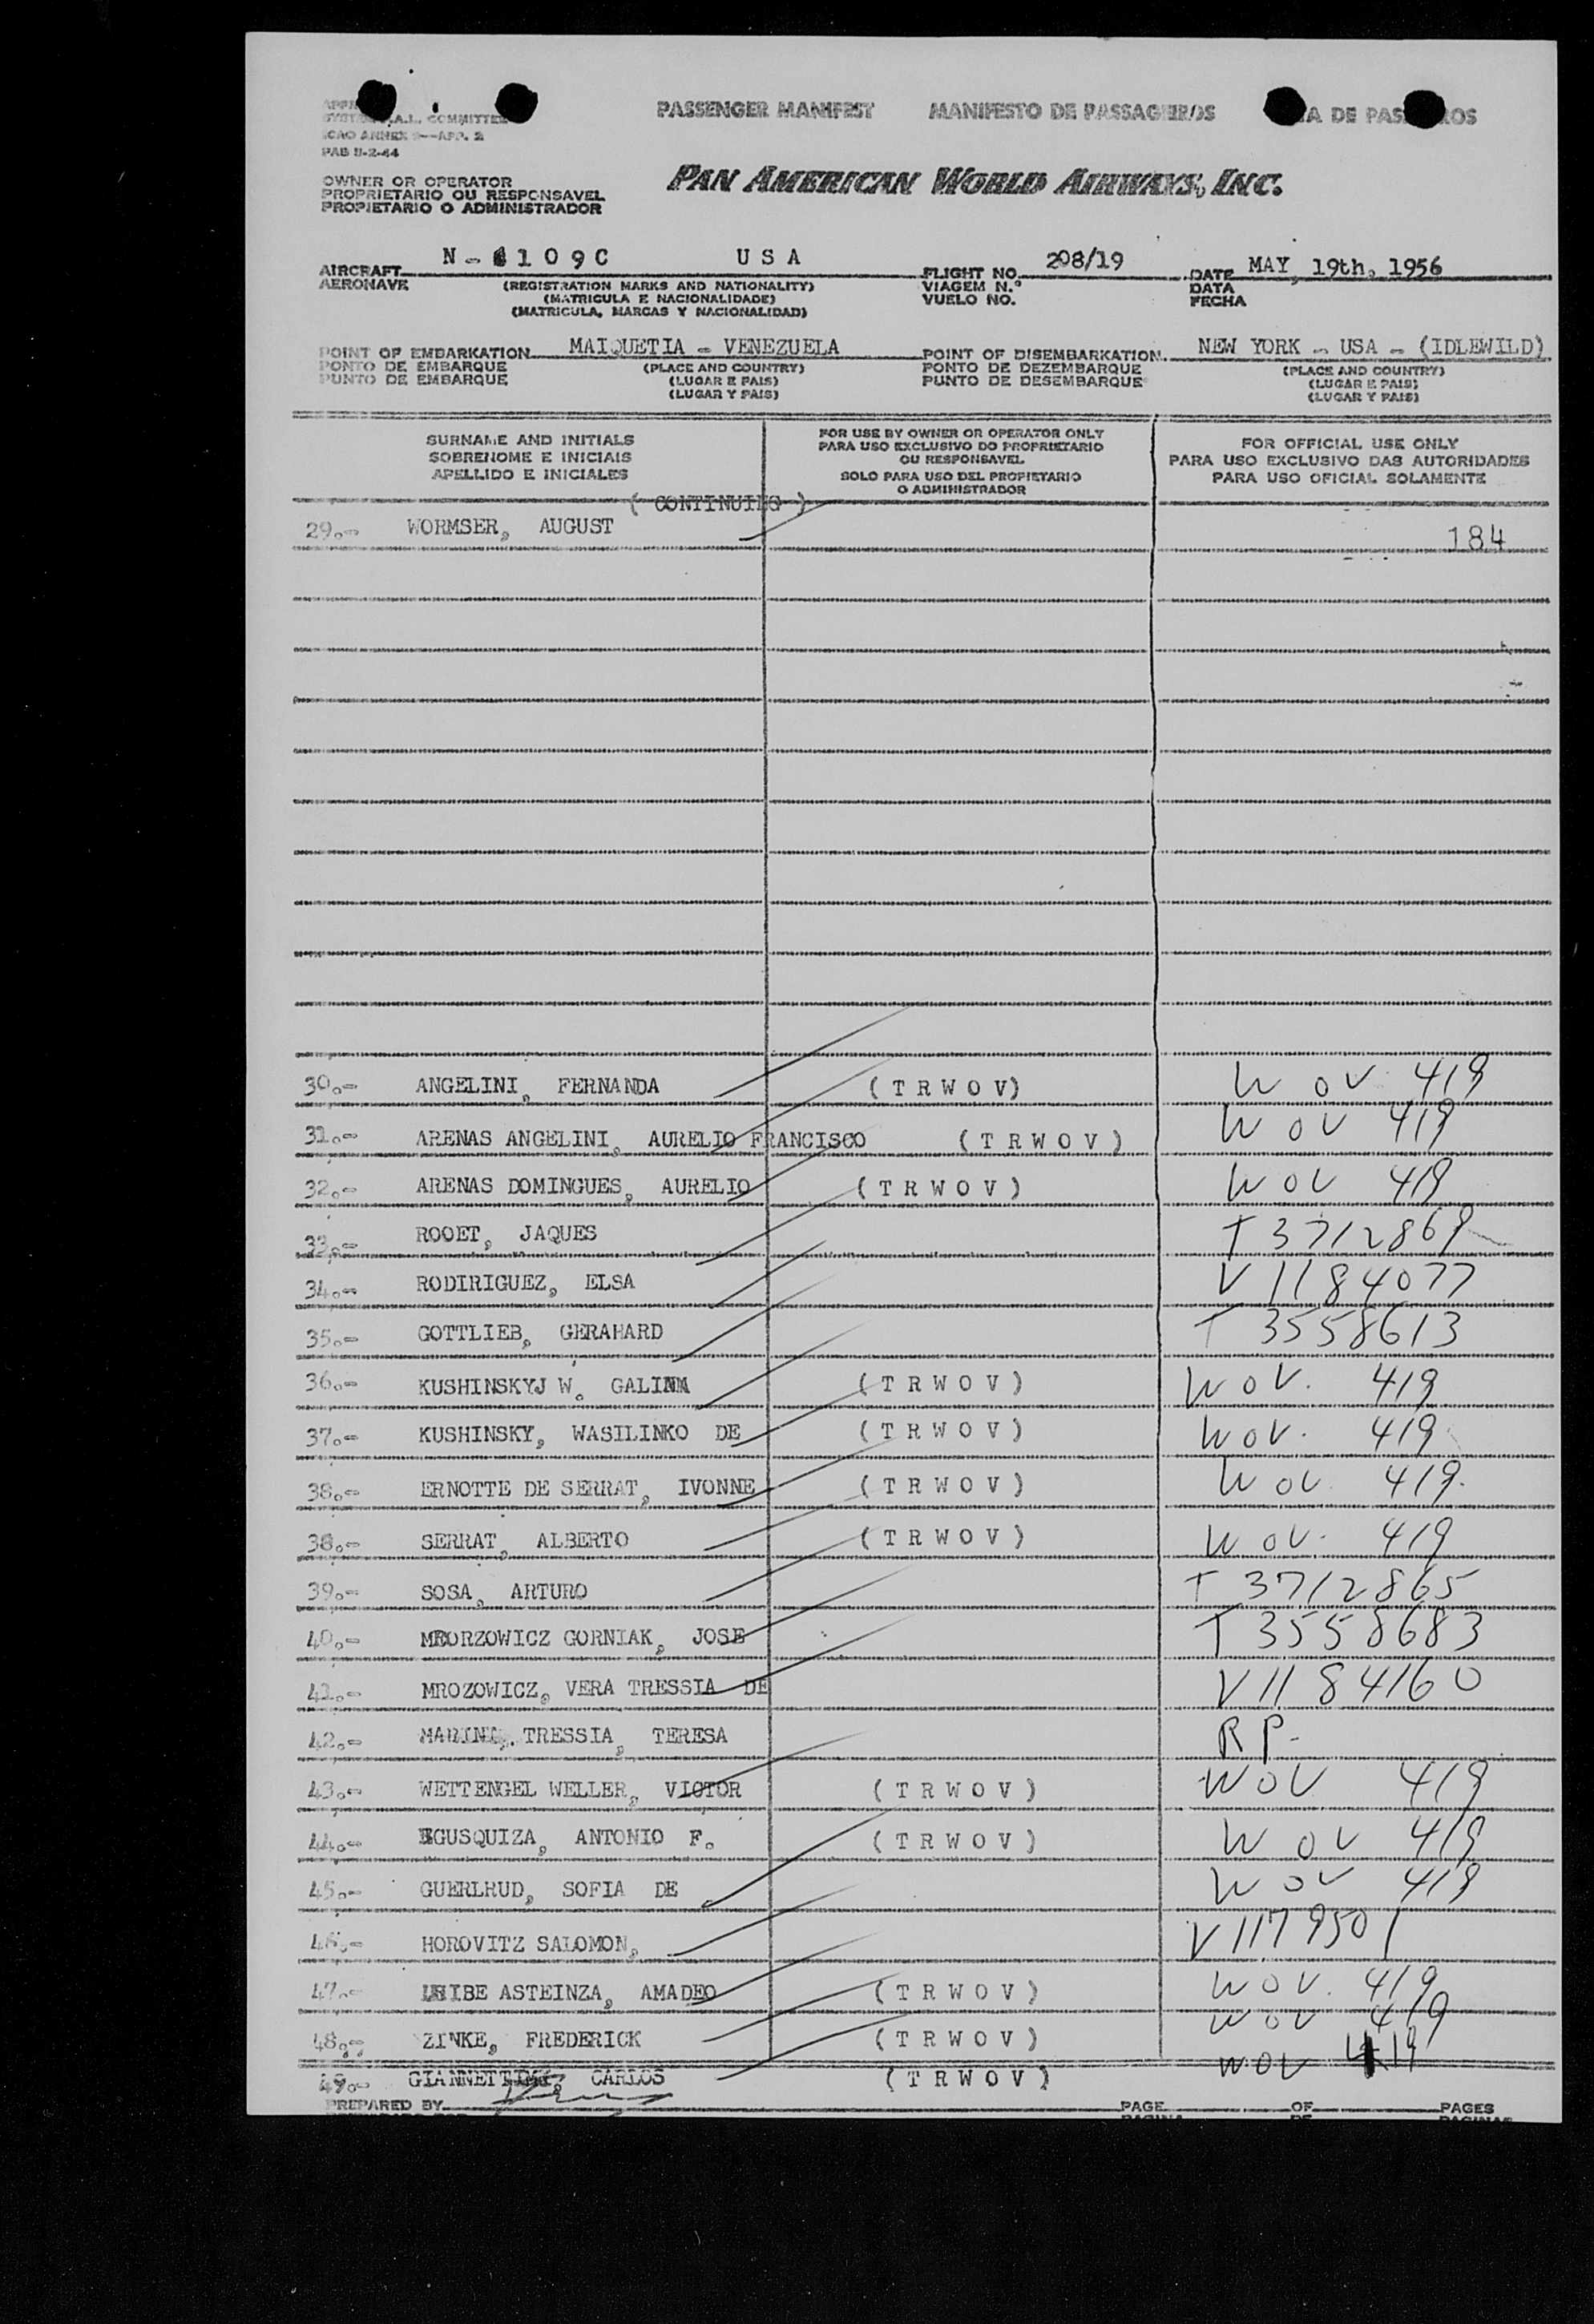 PASSENGER MANIFEST MANIFESTO DE PASSAGEIROS DE
A.L. COMMITTEE
ICAO ANNEX 9--APP. 2
PAB 11-2-44
OWNER OR OPERATOR
PROPRIETARIO OU RESPONSAVEL
PROPIETARIO O ADMINISTRADOR
PAN AMERICAN WORLD AIRWAYS, INC.
AIRCRAFT N-6109C USA FLIGHT NO. 208/19 DATE MAY, 19th, 1956
AERONAVE (REGISTRATION MARKS AND NATIONALITY) VIAGEM N.º DATA
(MATRICULA E NACIONALIDADE) VUELO NO. FECHA
(MATRICULA, MARCAS Y NACIONALIDAD)
POINT OF EMBARKATION MAIQUETIA - VENEZUELA POINT OF DISEMBARKATION NEW YORK - USA - (IDLEWILD)
PONTO DE EMBARQUE (PLACE AND COUNTRY) PONTO DE DEZEMBARQUE (PLACE AND COUNTRY)
PUNTO DE EMBARQUE (LUGAR E PAIS) PUNTO DE DESEMBARQUE (LUGAR E PAIS)
(LUGAR Y PAIS) (LUGAR Y PAIS)
SURNAME AND INITIALS
SOBRENOME E INICIAIS
APELLIDO E INICIALES
FOR USE BY OWNER OR OPERATOR ONLY
PARA USO EXCLUSIVO DO PROPRIETARIO
OU RESPONSAVEL
SOLO PARA USO DEL PROPIETARIO
O ADMINISTRADOR
FOR OFFICIAL USE ONLY
PARA USO EXCLUSIVO DAS AUTORIDADES
PARA USO OFICIAL SOLAMENTE
( CONTINUING )
29.- WORMSER, AUGUST 184
30.- ANGELINI, FERNANDA (TRWOV) WOV 419
31.- ARENAS ANGELINI, AURELIO FRANCISCO (TRWOV) WOV 419
32.- ARENAS DOMINGUES, AURELIO (TRWOV) WOV 419
33.- ROOET, JAQUES T 3712869
34.- RODIRIGUEZ, ELSA V 1184077
35.- GOTTLIEB, GERAHARD T 3558613
36.- KUSHINSKYJ W. GALINA (TRWOV) WOV. 419
37.- KUSHINSKY, WASILINKO DE (TRWOV) WOV. 419
38.- ERNOTTE DE SERRAT, IVONNE (TRWOV) WOV. 419.
38.- SERRAT, ALBERTO (TRWOV) WOV. 419
39.- SOSA, ARTURO T 3712865
40.- MEORZOWICZ GORNIAK, JOSE T 3558683
41.- MROZOWICZ, VERA TRESSIA DE V 1184160
42.- TRESSIA, TERESA RP-
43.- WETTENGEL WELLER, VICTOR (TRWOV) WOV 419
44.- EGUSQUIZA, ANTONIO F. (TRWOV) WOV 419
45.- GUERLRUD, SOFIA DE WOV 419
46.- HOROVITZ SALOMON, V 1179501
47.- ASTEINZA, AMADEO (TRWOV) WOV. 419
48.- ZINKE, FREDERICK (TRWOV) WOV 419
49.- CARLOS (TRWOV) WOV 419
PREPARED BY PAGE OF PAGES